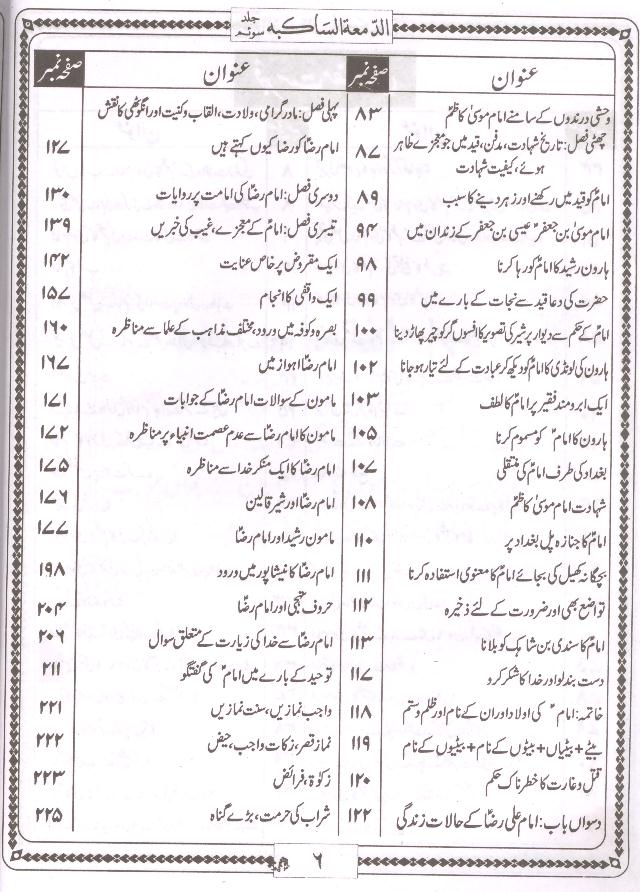 الدّمعۃ الساکبہ جلد سوئم
عنوان صفحہ نمبر
وحشی درندوں کے سامنے امام موسیٰ کاظمؑ ۸۳
چھٹی فصل: تاریخ شہادت، مدفن، قید میں جو معجزے ظاہر ۸۷
ہوئے، کیفیت شہادت
امامؑ کو قید میں رکھنے اور زہر دینے کا سبب ۸۹
امام موسیٰ بن جعفرؑ عیسیٰ بن جعفر کے زندان میں ۹۴
ہارون رشید کا امامؑ کو رہا کرنا ۹۸
حضرت کی دعا قید سے نجات کے بارے میں ۹۹
امامؑ کے حکم سے دیوار پر شیر کی تصویر کا افسوں گر کو چیر پھاڑ دینا ۱۰۰
ہارون کی لونڈی کا امامؑ کو دیکھ کر عبادت کے لئے تیار ہو جانا ۱۰۲
ایک ابرومند فقیر پر امامؑ کا لطف ۱۰۳
ہارون کا امامؑ کو مسموم کرنا ۱۰۵
بغداد کی طرف امامؑ کی منتقلی ۱۰۷
شہادت امام موسیٰ کاظمؑ ۱۰۸
امامؑ کا جنازہ پل بغداد پر ۱۱۰
بچگانہ کھیل کی بجائے امامؑ کا معنوی استفادہ کرنا ۱۱۱
تواضع بھی اور ضرورت کے لئے ذخیرہ ۱۱۲
امامؑ کا سندی بن شاہک کو بلانا ۱۱۳
دست بند لو اور خدا کا شکر کرو ۱۱۷
خاتمہ: امامؑ کی اولاد اور ان کے نام اور ظلم و ستم ۱۱۸
بیٹے + بیٹیاں + بیٹوں کے نام + بیٹیوں کے نام ۱۱۹
قتل و غارت کا خطرناک حکم ۱۲۰
دسواں باب: امام علی رضاؑ کے حالات زندگی ۱۲۲
عنوان صفحہ نمبر
پہلی فصل: مادر گرامی، ولادت، القاب و کنیت اور انگوٹھی کا نقش
امام رضاؑ کو رضا کیوں کہتے ہیں ۱۲۷
دوسری فصل: امام رضاؑ کی امامت پر روایات ۱۳۰
تیسری فصل: امامؑ کے معجزے، غیب کی خبریں ۱۳۹
ایک مقروض پر خاص عنایت ۱۴۲
ایک واقفی کا انجام ۱۵۷
بصرہ و کوفہ میں ورود، مختلف مذاہب کے علما سے مناظرہ ۱۶۰
امام رضاؑ اہواز میں ۱۶۷
مامون کے سوالات امام رضاؑ کے جوابات ۱۷۱
مامون کا امام رضاؑ سے عدم عصمت انبیاء پر مناظرہ ۱۷۲
امام رضاؑ کا ایک منکر خدا سے مناظرہ ۱۷۵
امام رضاؑ اور شیر قالین ۱۷۶
مامون رشید اور امام رضاؑ ۱۷۷
امام رضاؑ کا نیشاپور میں ورود ۱۹۸
حروف تہجی اور امام رضاؑ ۲۰۴
امام رضاؑ سے خدا کی زیارت کے متعلق سوال ۲۰۶
توحید کے بارے میں امامؑ کی گفتگو ۲۱۱
واجب نمازیں، سنت نمازیں ۲۲۱
نماز قصر، زکات واجب، حیض ۲۲۲
زکوٰۃ، فرائض ۲۲۳
شراب کی حرمت، بڑے گناہ ۲۲۵
۶